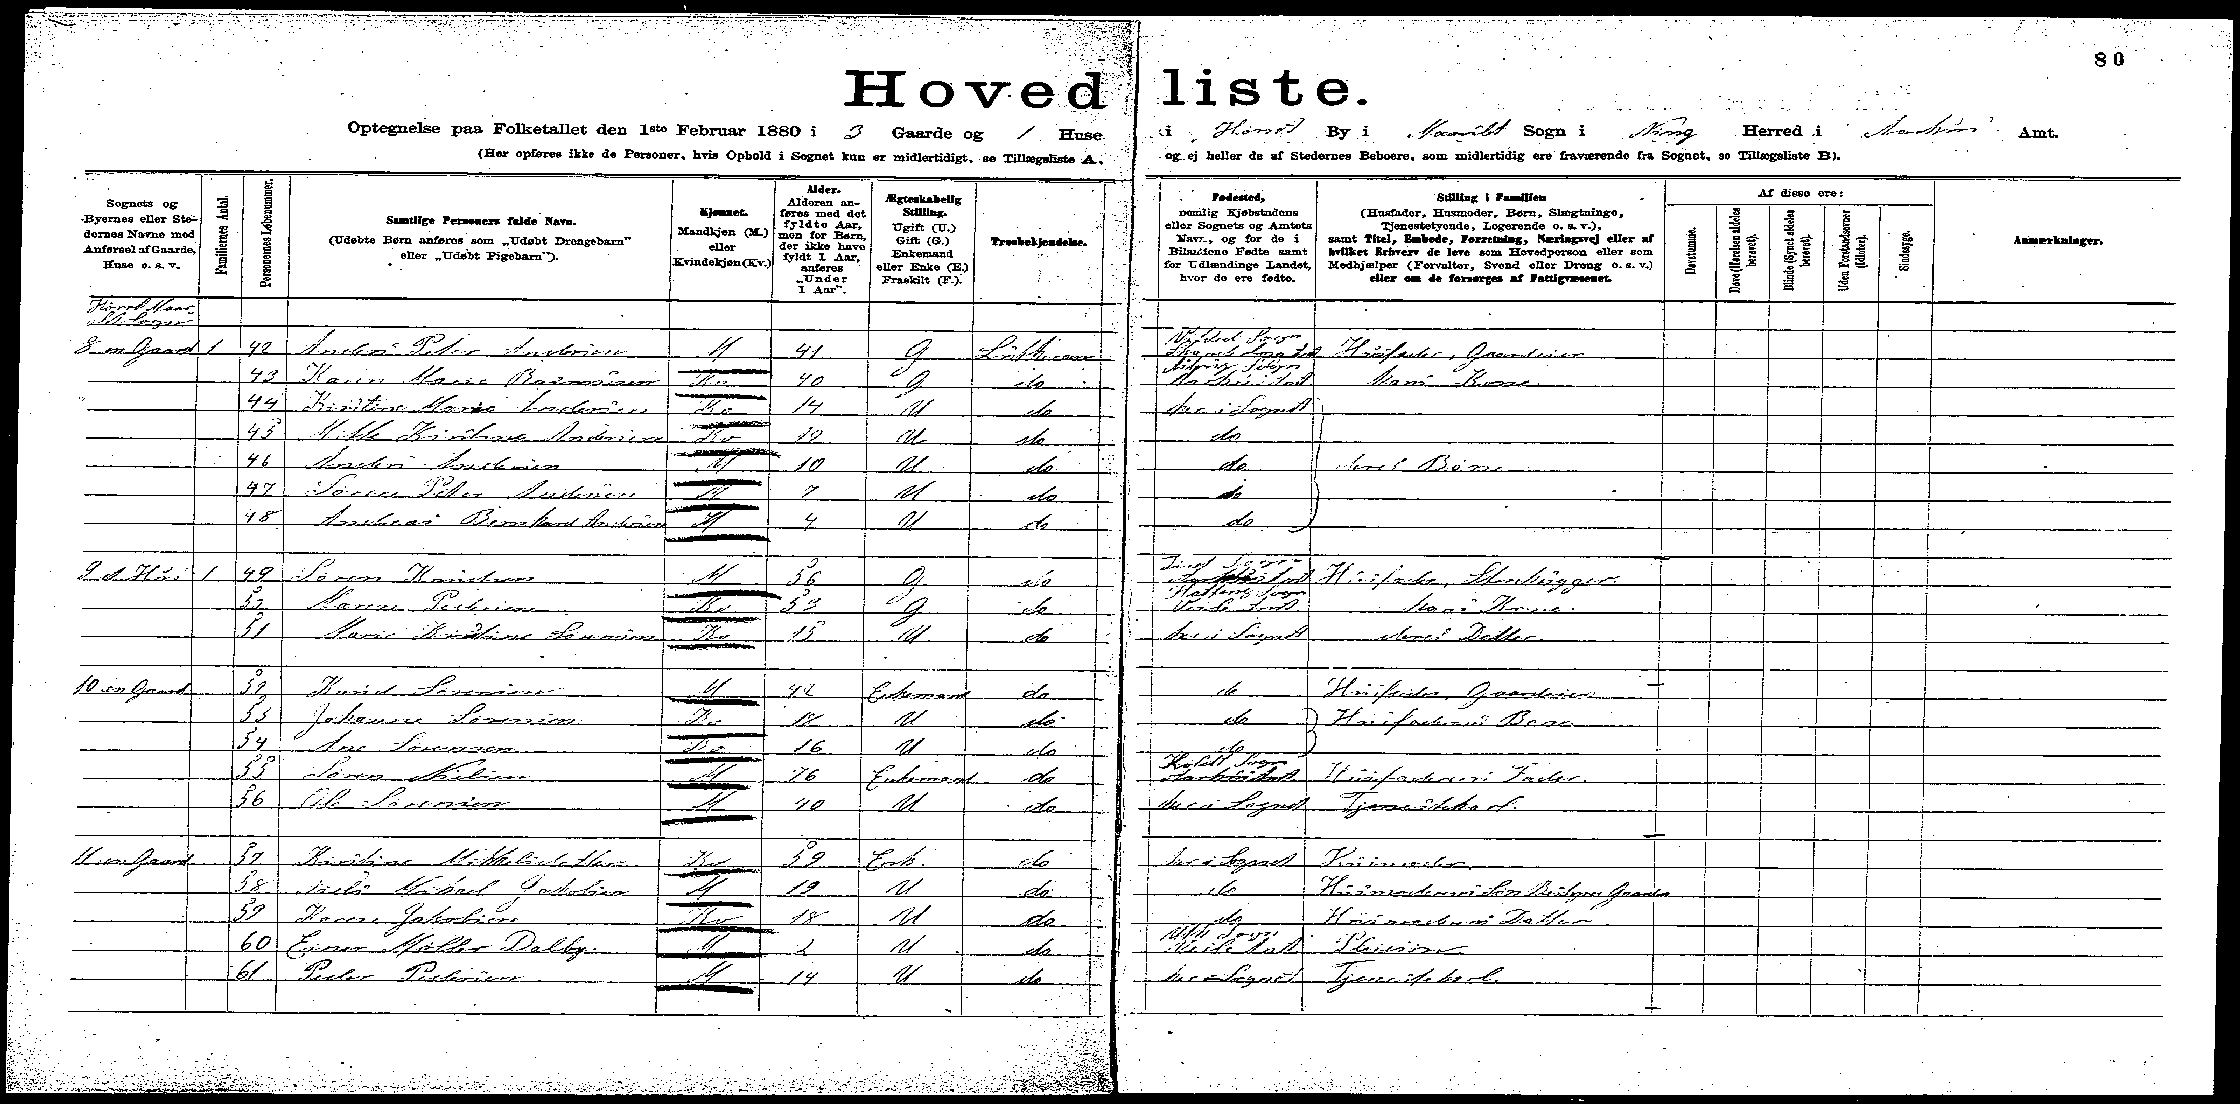 80
Hovedliste.
Optegnelse paa Folketallet den 1ste Februar 1880 i 3 Gaarde og 1 Huse i Hørret By i Maarslet Sogn i Ning Herred i Aarhus Amt.
(Her opføres ikke de Personer, hvis Ophold i Sognet kun er midlertidigt, se Tillægsliste A, og ej heller de af Stedernes Beboere, som midlertidig ere fraværende fra Sognet, se Tillægsliste B).
Sognets og Byernes eller Stedernes Navne med Anførsel af Gaarde, Huse o. s. v.
Familiernes Antal.
Personernes Løbenummer.
Samtlige Personers fulde Navn.
(Udøbte Børn anføres som „Udøbt Drengebarn" eller „Udøbt Pigebarn").
Kjønnet. Mandkjøn (M.) eller Kvindekjøn (Kv.)
Alder. Alderen anføres med det fyldte Aar, men for Børn, der ikke have fyldt 1 Aar, anføres „Under 1 Aar".
Ægteskabelig Stilling. Ugift (U.) Gift (G.) Enkemand eller Enke (E.) Fraskilt (F.).
Troesbekjendelse.
Fødested, nemlig Kjøbstadens eller Sognets og Amtets Navn, og for de i Bilandene Fødte samt for Udlændinge Landet, hvor de ere fødte.
Stilling i Familien (Husfader, Husmoder, Børn, Slægtninge, Tjenestetyende, Logerende o. s. v.), samt Titel, Embede, Forretning, Næringsvej eller af hvilket Erhverv de leve som Hovedperson eller som Medhjælper (Forvalter, Svend eller Dreng o. s. v.) eller om de forsørges af Fattigvæsenet.
Af disse ere:
Døvstumme.
Døve (Hørelsen aldeles berøvet).
Blinde (Synet aldeles berøvet).
Uden Forstandsevner (Idioter).
Sindssyge.
Anmærkninger.
8 en Gaard 1 42 Anders Peter Andersen M 41 G Luthersk Husfader, Gaardejer
43 Karen Marie Rasmussen Kv 40 G do Aarhus Amt hans Kone
44 Kirstine Marie Andersen Kv 14 U do her i Sognet
45 Mette Kirstine Andersen Kv 12 U do do
46 Anders Andersen M 10 U do do deres Børn
47 Søren Peter Andersen M 7 U do do
48 Andreas Bernhard Andersen M 4 U do do
9 et Hus 1 49 Søren Knudsen M 56 G do Aarhus Amt Husfader, Stenhugger
50 Maren Pedersen Kv 53 G do Hatting Sogn Veile Amt hans Kone
51 Marie Kirstine Sørensen Kv 15 U do her i Sognet deres Datter
10 en Gaard 52 Knud Sørensen M 42 Enkemand do do Husfader, Gaardejer
53 Johanne Sørensen Kv U do do Husfaderens Børn
54 Ane Sørensen Kv 16 U do do
55 Søren Nielsen M 76 Enkemand do Kolt Sogn Aarhus Amt Husfaderens Fader.
56 Ole Sørensen M 40 U do her i Sognet Tjenestekarl.
11 en Gaard 57 Kirstine Mikkelsdatter Kv 59 Enke do her i Sognet Husmoder
58 Niels Mikael Jakobsen M 19 U do do Husmoderens Søn Bestyrer Gaarden
59 Karen Jakobsen Kv 18 U do do Husmoderens Datter
60 Einer Møller Dalby M 2 U do Veile Amt Pleiesøn
61 Peder Pedersen M 14 U do her i Sognet Tjenestekarl.